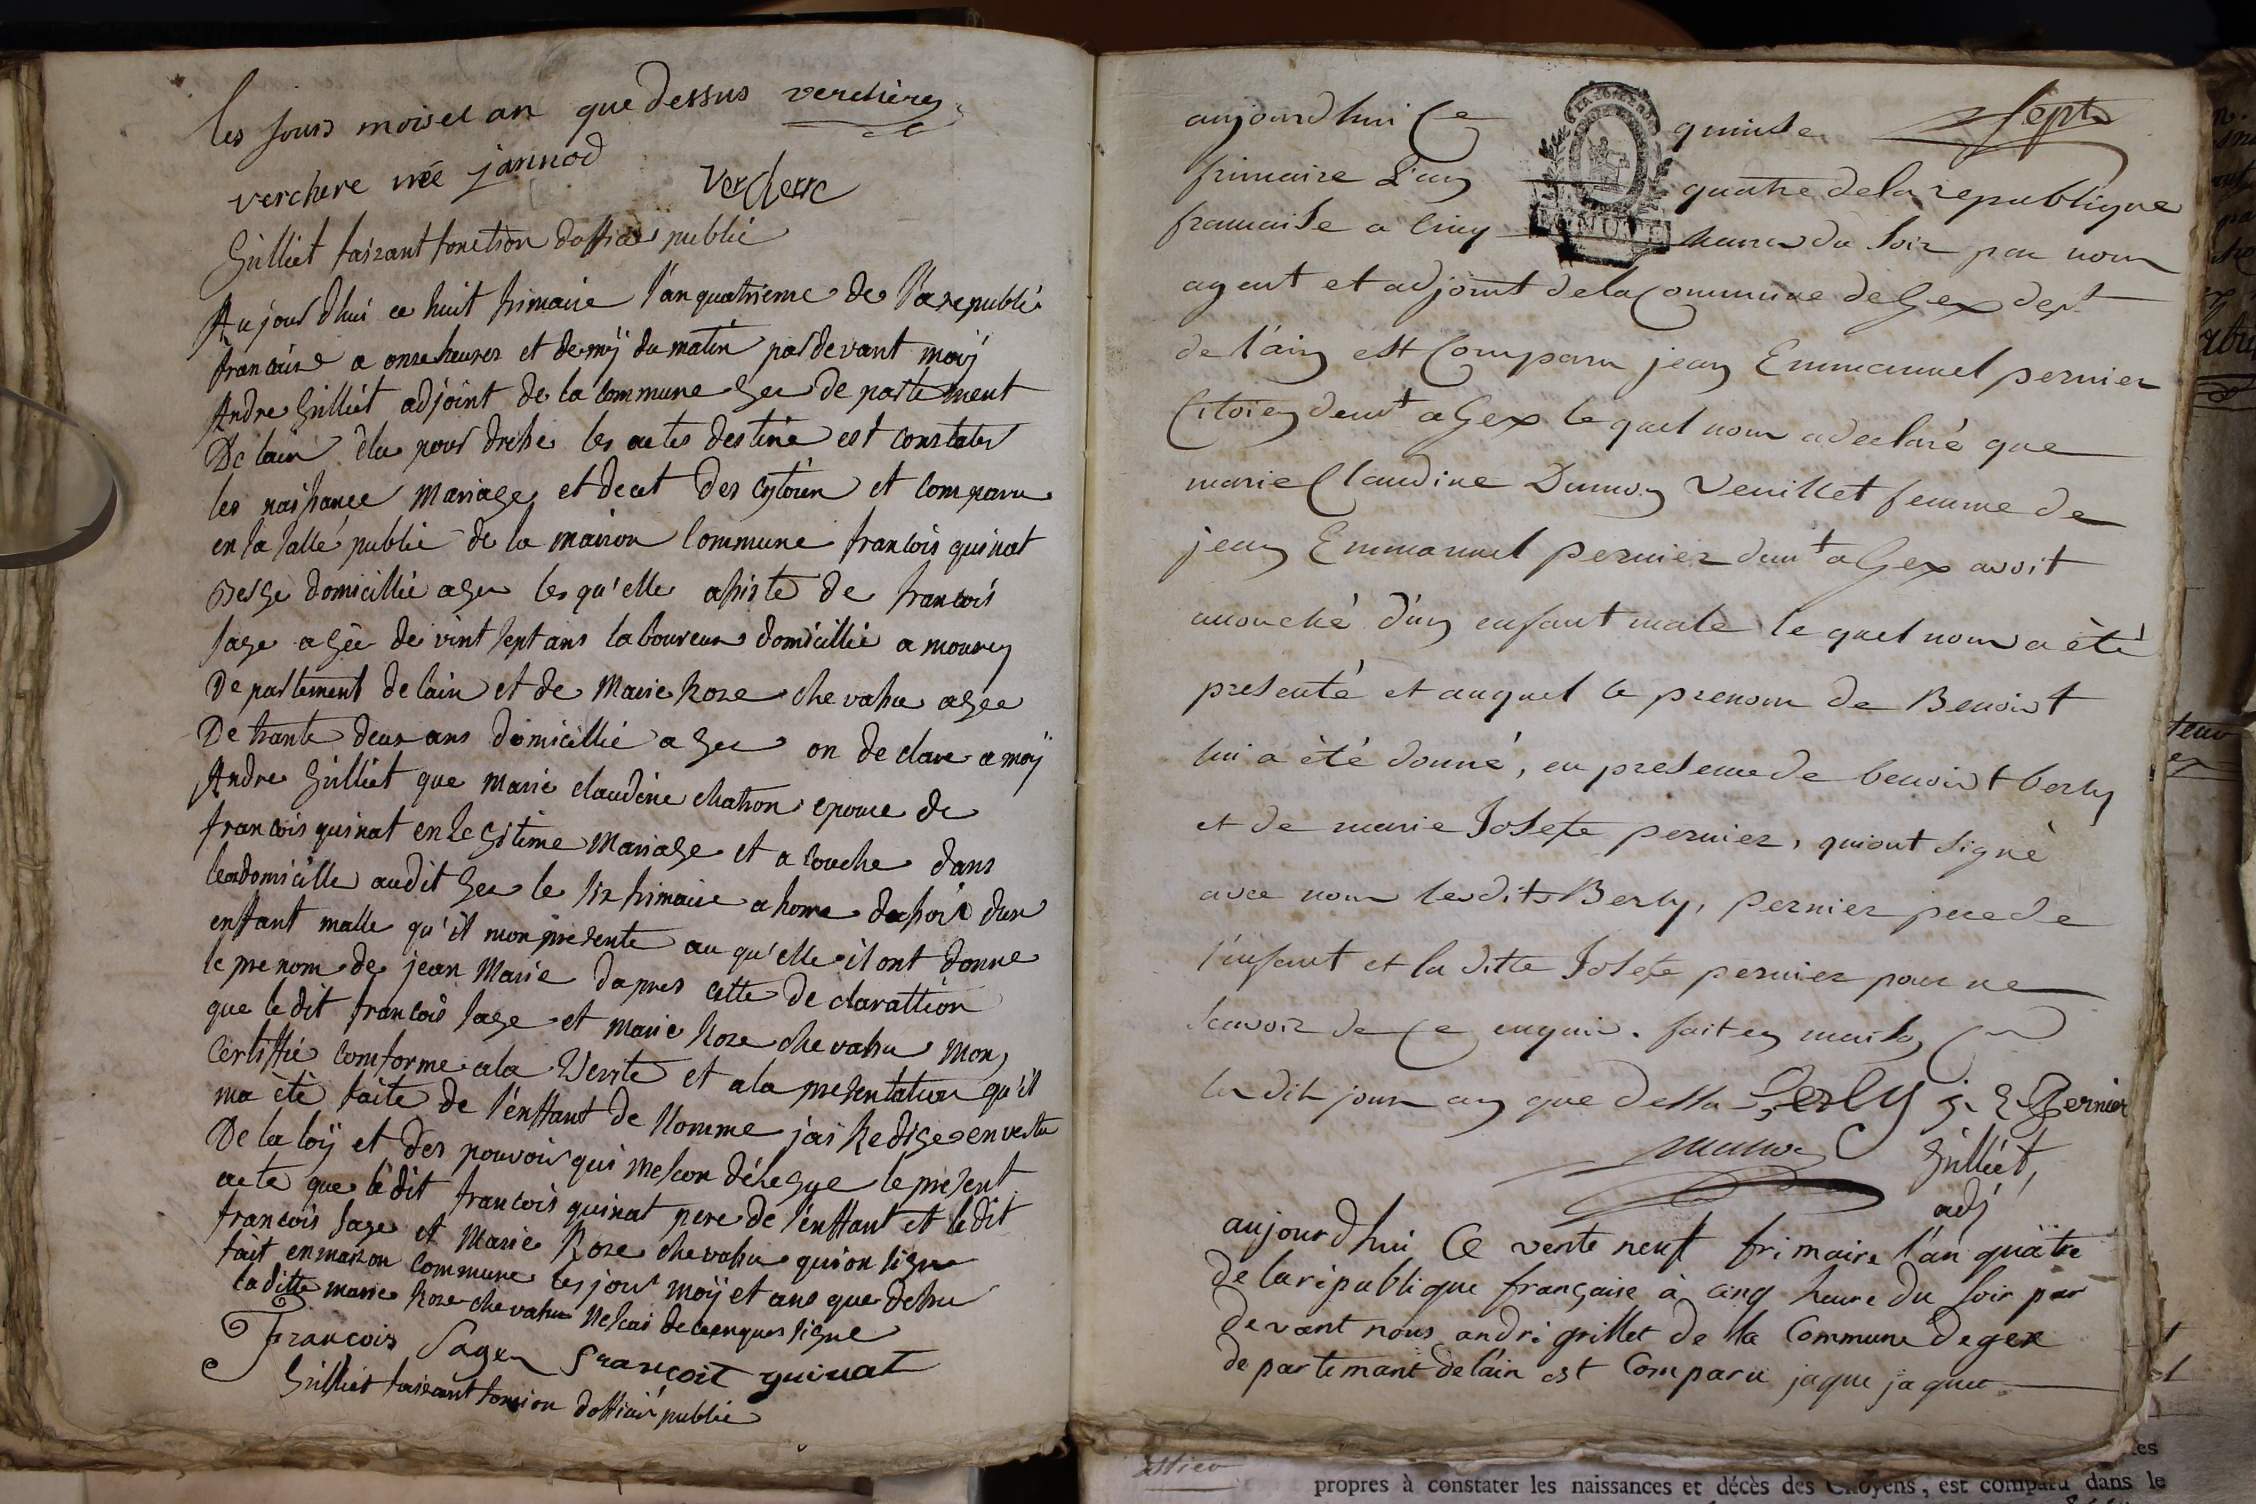 les jours mois et an que dessus verchere
verchere née jannod
Vercherre
Gilliet faizant fonction doffice publié
Aujour dhui ce huit frimaire l'an quatrieme de la republi
francaise a onze heures et demÿ du matin par devant moÿ
Andre Gilliet adjoint de la commune Gex de partement
De lain élu pour dresse les actes destiné est constater
les naissance mariage et decet des cytoien et comparu
en la salle publié de la maison commune francois quinat
domicillié a Gex les qu'elle assisté de francois
sage agée de vint sept ans laboureur domicillié a mourex
De partement de lain et de Marie Roze chevassu agee
De trante deux ans domicillié a Gex on de clare a moÿ
Andre Gilliet que Marie claudine chatron epouse de
francois quinat en legitime Mariage et a couche dans
domicille audit Gex le six frimaire a
enffant malle qu'il mon presenté au qu'elle il ont donne
le prenom de jean Marie dapres cette de clarattion
que le dit francois sage et Marie Roze chevassu mon
Certiffié comforme a la Verité et a la presentation qu'il
ma été faite de l'enffant de Nomme jai Redige en vertu
De la loÿ et des pouvoir qui me son délegue le present
acte que le dit francois quinat pere de l'enffant et le dit
francois sage et Marie Roze chevassu qui on signe
fait en maison commune les jour moÿ et ans que dessu
la ditte marie Roze chevassu ne scai de ce enques signe
Francois Sage francoit quinat
Gilliet faizant fonsion doffice publié
aujourdhui Ce quinse sept
frimaire L'an quatre de la republique
francaise a cinq heures du soir par nous
agent et adjoint de la Commune de Gex dept
de l'ain est Comparu jean Emmanuel pernier
Citoien demt a Gex le quel nous a declaré que
marie Claudine Dumon Veuillet femme de
jean Emmanuel pernier demt a Gex avoit
accouché d'un enfant male le quel nous a été
presenté et auquel le prenom de Benoist
lui a été donné, en presence de benoist Berly
et de marie Josete pernier, qui ont signé
avec nous les dits Berly, pernier pere de
l'enfant et la ditte Josete pernier pour ne
scavoir de ce enquis. fait en maison Cne
les dit jour an que dessu Berly j. E. Pernier
Gilliet,
adj
aujourdhui Ce vente neuf frimaire l'an quatre
de la république française à cinq heure du soir par
devant nous andré grillet de la Commune de gex
de partemant de lain est Comparu jaque jaquet
propres à constater les naissances et décès des Citoyens, est comparu dans le